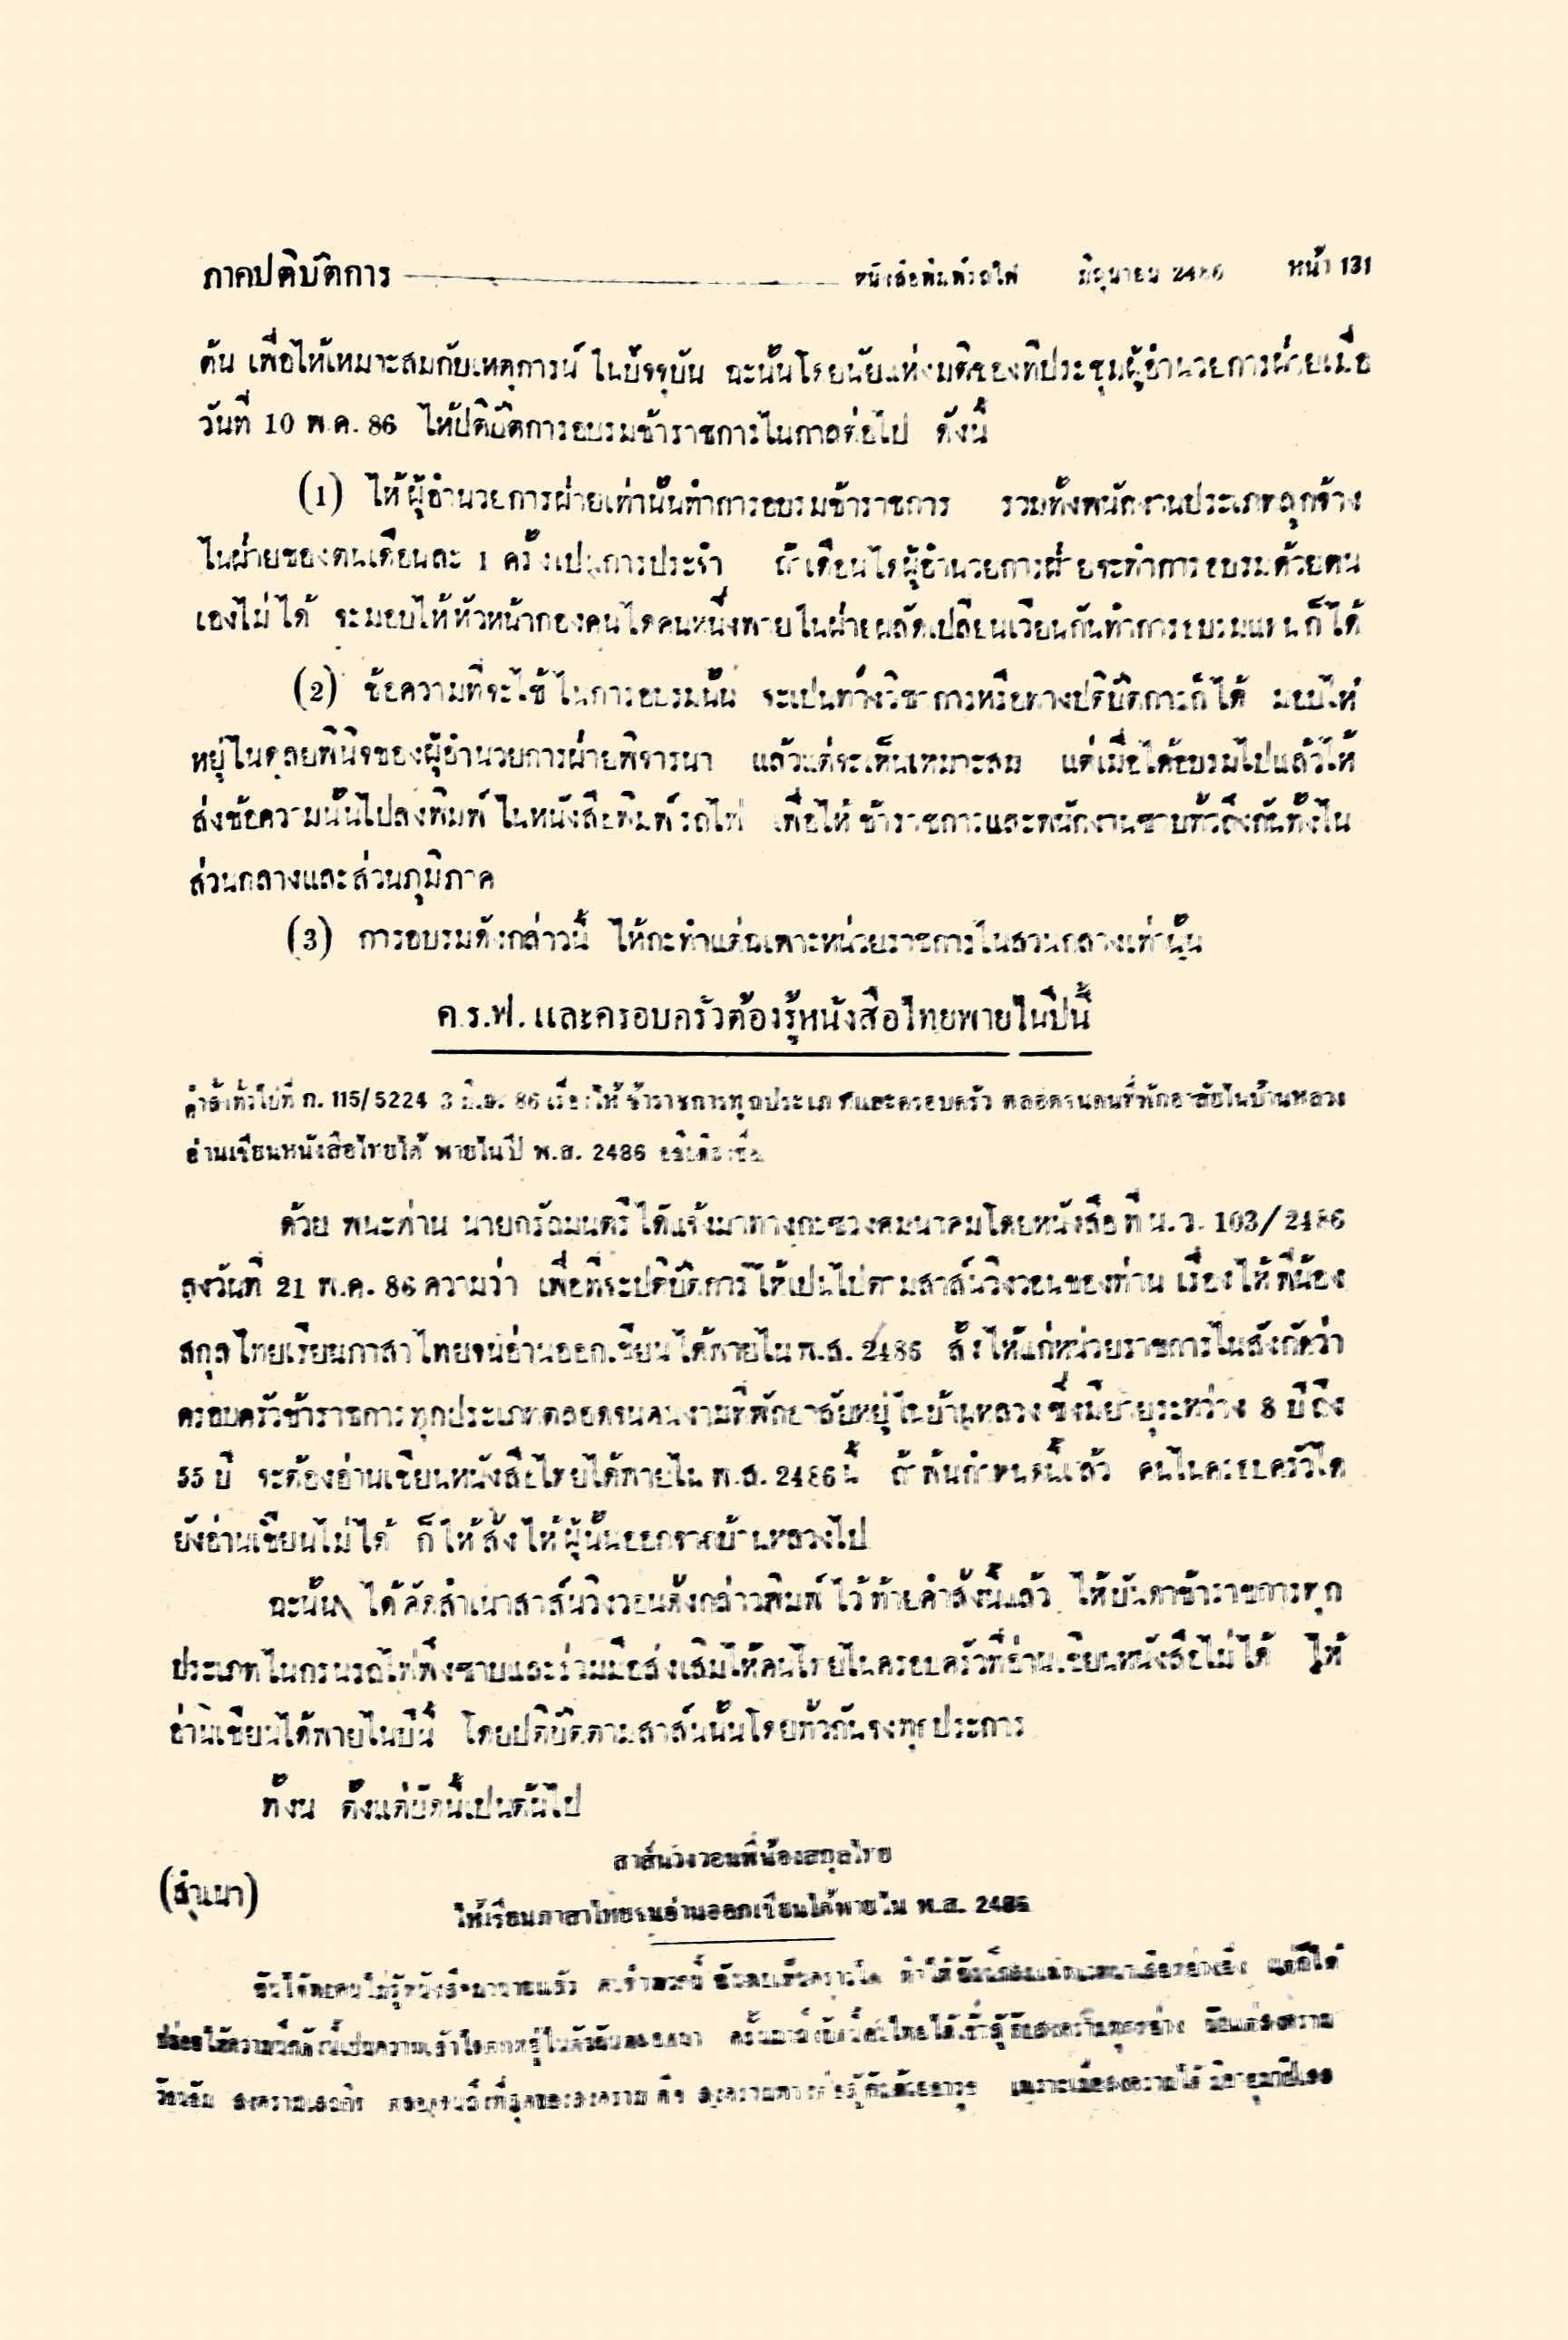 ภาคปติบัติการ หนังสือพิมพ์รถไฟ มิถุนายน 2486 หน้า 131
ต้น เพื่อไห้เหมาะสมกับเหตุการน์ ไนปัจจุบัน ฉะนั้นโดยนัยแห่งมติของที่ประชุมผู้อำนวยการฝ่ายเมื่อ
วันที่ 10 พ.ค. 86 ไห้ปติบัติการอบรมข้าราชการไนกาลต่อไป ดังนี้
(1) ไห้ผู้อำนวยการฝ่ายเท่านั้นทำการอบรมข้าราชการ รวมทั้งพนักงานประเภทลูกจ้าง
ไนฝ่ายของตนเดือนละ 1 ครั้งเปนการประจำ ถ้าเดือนไดผู้อำนวยการฝ่ายจะทำการอบรมด้วยตน
เองไม่ได้ จะมอบไห้หัวหน้ากองคนไดคนหนึ่งพายไนฝ่ายผลัดเปลี่ยนเวียนกันทำการอบรมแทนก็ได้
(2) ข้อความที่จะไช้ไนการอบรมนั้น จะเปนทางวิชาการหรือทางปติบัติการก็ได้ มอบไห้
หยู่ไนดุลยพินิจของผู้อำนวยการฝ่ายพิจารนา แล้วแต่จะเห็นเหมาะสม แต่เมื่อได้อบรมไปแล้วไห้
ส่งข้อความนั้นไปลงพิมพ์ไนหนังสือพิมพ์รถไฟ เพื่อไห้ข้าราชการและพนักงานซาบทั่วถึงกันทั้งไน
ส่วนกลางและส่วนภูมิภาค
(3) การอบรมดังกล่าวนี้ ไห้กะทำแต่ฉเพาะหน่วยราชการไนส่วนกลางเท่านั้น
ค.ร.ฟ. และครอบครัวต้องรู้หนังสือไทยพายไนปีนี้
คำสั่งทั่วไปที่ ก. 115/5224 3 มิ.ย. 86 เรื่องไห้ข้าราชการทุกประเภทและครอบครัว ตลอดจนคนที่พักอาสัยไนบ้านหลวง
อ่านเขียนหนังสือไทยได้ พายไนปี พ.ส. 2486
ด้วย พนะท่าน นายกรัถมนตรีได้แจ้งมาทางกะซวงคมนาคมโดยหนังสือที่ น.ว. 103/2486
ลงวันที่ 21 พ.ค. 86 ความว่า เพื่อที่จะปติบัติการไห้เปนไปตามสาส์นวิงวอนของท่าน เรื่องไห้พี่น้อง
สกุลไทยเรียนภาสาไทยจนอ่านออกเขียนได้พายไน พ.ส. 2486 สั่งไห้แก่หน่วยราชการไนสังกัดว่า
ครอบครัวข้าราชการทุกประเภทตลอดจนคนงานที่พักอาสัยหยู่ไนบ้านหลวง ซึ่งมีอายุระหว่าง 8 ปีถึง
55 ปี จะต้องอ่านเขียนหนังสือไทยได้พายไน พ.ส. 2486 นี้ ถ้าพ้นกำหนดนี้แล้ว คนไนครอบครัวได
ยังอ่านเขียนไม่ได้ ก็ไห้สั่งไห้ผู้นั้นออกจากบ้านหลวงไป
ฉะนั้น ได้คัดสำเนาสาส์นวิงวอนดังกล่าวพิมพ์ไว้ท้ายคำสั่งนี้แล้ว ไห้บันดาข้าราชการทุก
ประเภทไนกรมรถไฟพึงซาบและร่วมมือส่งเสิมไห้คนไทยไนครอบครัวที่อ่านเขียนหนังสือไม่ได้ ไห้
อ่านเขียนได้พายไนปีนี้ โดยปติบัติตามสาส์นนั้นโดยทั่วกันจงทุกประการ
ทั้งนี้ ตั้งแต่บัดนี้เปนต้นไป
สาส์นวิงวอนพี่น้องสกุลไทย
(สำเนา)
ไห้เรียนภาสาไทยจนอ่านออกเขียนได้พายไน พ.ส. 2486
ฉันได้พบคนไม่รู้หนังสือมามากแล้ว